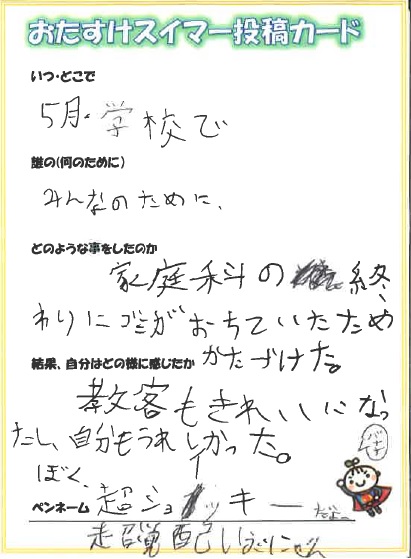 おたすけスイマー投稿カード
いつ・どこで
5月・学校で
誰の(何のために)
みんなのために、
どのような事をしたのか
家庭科の 終
わりにゴミがおちていたため
結果、自分はどの様に感じたか かたづけた。
教客もきれいになっ
たし、自分もうれしかった。
ぼく、
ペンネーム 超ショッキー だよー